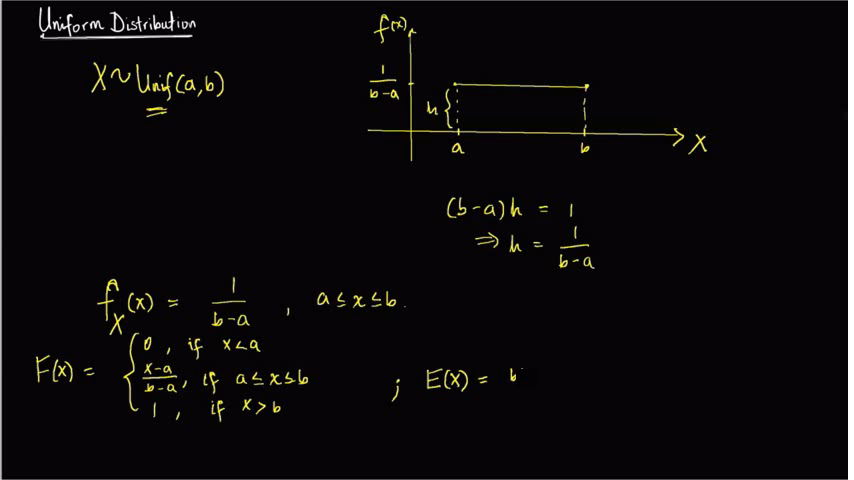 Uniform Distribution
X ~ Unif(a,b)
f(x)
1/(b-a)
h {
a b X
(b-a)h = 1
⇒ h = 1/(b-a)
f_X(x) = 1/(b-a) , a ≤ x ≤ b.
F(x) = { 0 , if x<a
(x-a)/(b-a), if a ≤ x ≤ b
1 , if x > b
; E(X) = b